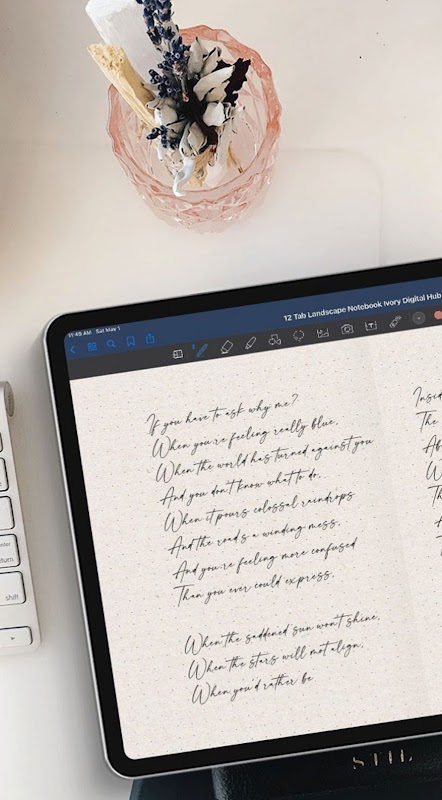 11:45 AM Sat May 1
12 Tab Landscape Notebook Ivory Digital Hub
If you have to ask why me?
When you're feeling really blue,
When the world has turned against you
And you don't know what to do,
When it pours colossal raindrops
And the road's a winding mess,
And you're feeling more confused
Than you ever could express,
When the saddened sun won't shine,
When the stars will not align,
When you'd rather be
Insid
The
Ab
W
Th
enter
return
shift
STIL